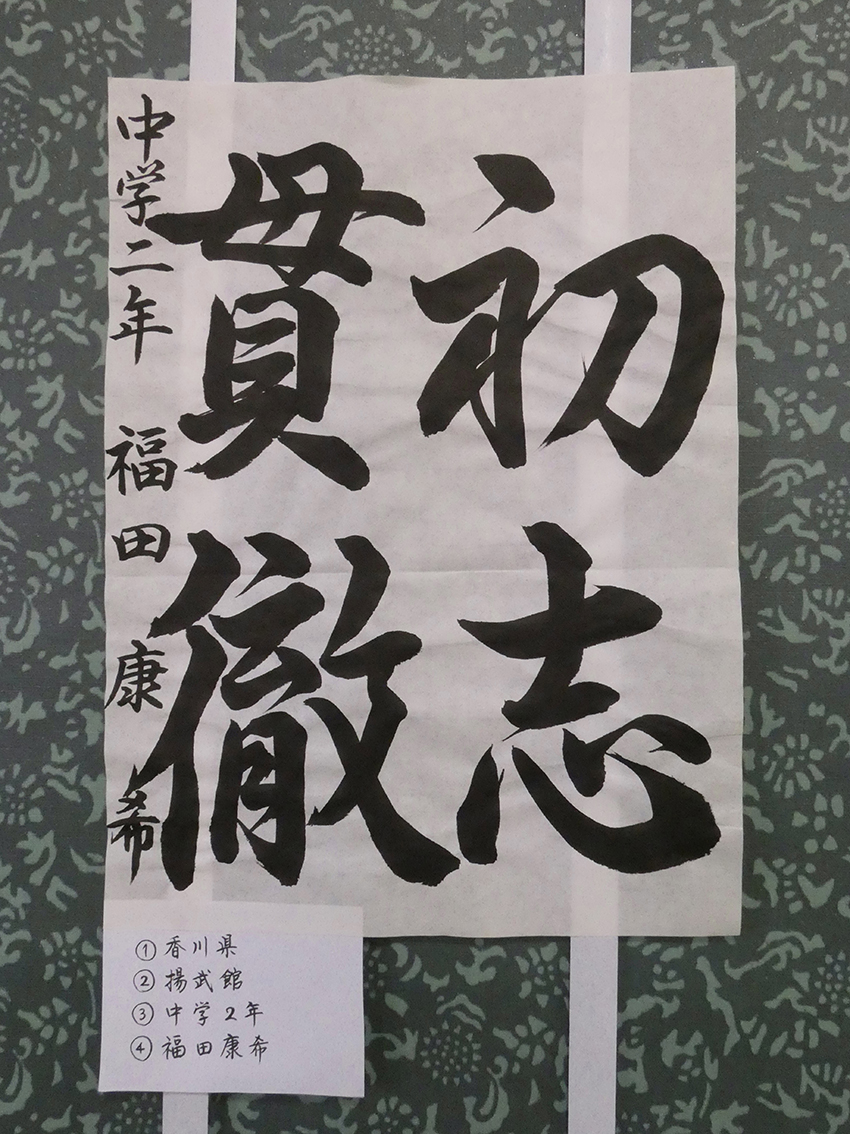 初志
貫徹
中学二年 福田康希
①香川県
②揚武館
③中学2年
④福田康希